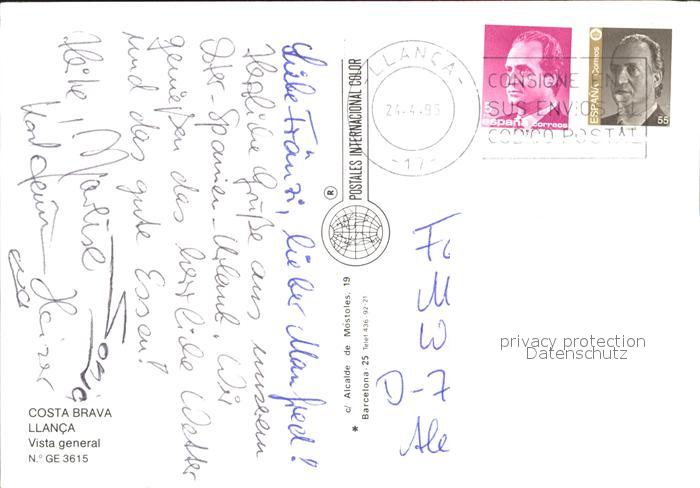 Liebe Fränzi, lieber Manfred!
Herzliche Grüße aus unserem
Oster-Spanien-Urlaub. Wir
genießen das herrliche Wetter
und das gute Essen!
Marlise
Heinzer
COSTA BRAVA
LLANÇA
Vista general
N.° GE 3615
POSTALES INTERNACIONAL COLOR
®
* c/ Alcalde de Móstoles, 19
Barcelona-25 Telef 436-92-21
LLANÇA-
24-4-95
-17-
CONSIGNE EN
SUS ENVIOS EL
CODIGO POSTAL
5
españa correos
ESPAÑA Correos
55
F
M
W
D-7
Ale
privacy protection
Datenschutz